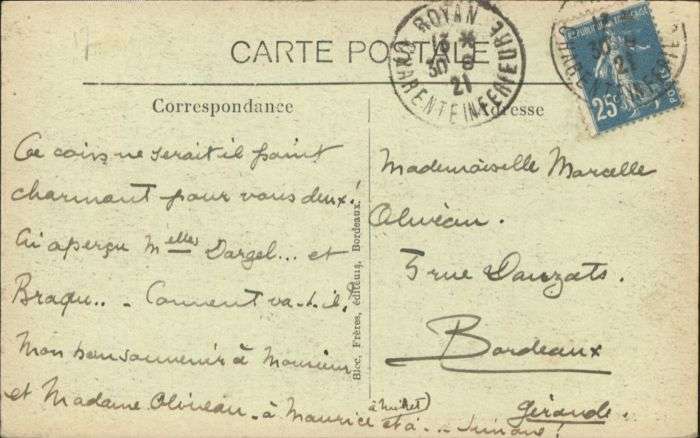 CARTE POSTALE
ROYAN
CHARENTE INFERIEURE
13
30 8
21
25c
Correspondance
Adresse
Ce coin ne serait il point
charmant pour vous deux!
Ai aperçu Melles Dargel... et
Braqu.. - Comment va-t-il?
Mon bon souvenir à Monsieur
et Madame Oliveau - à Maurice et à ...
Bloc, Frères, éditeurs, Bordeaux.
Mademoiselle Marcelle
Oliveau.
5 rue Dauzats.
Bordeaux
Gironde.